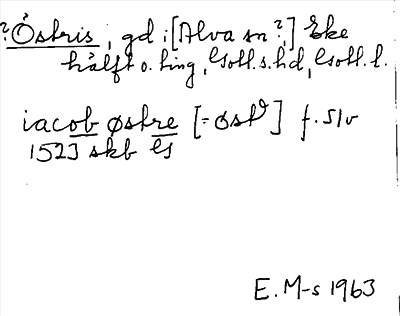 ? Östris, gd i [Alva sn?] Eke
hälft o. ting, Gotl. s. hd, Gotl. l.
iacob østre [= øst] f. 51v
1523 skb
E. M-s 1963